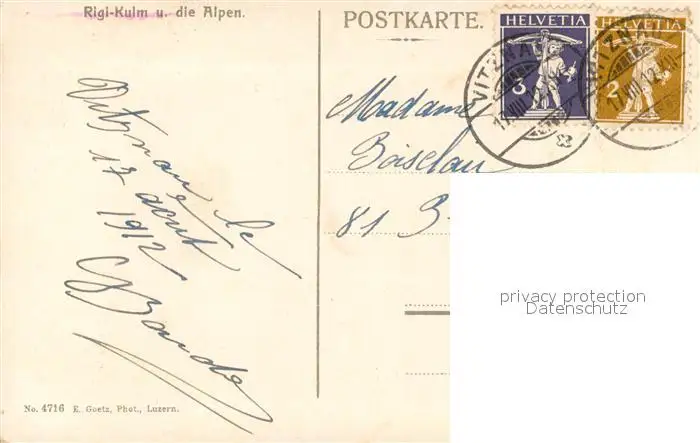 Rigi-Kulm u. die Alpen.
POSTKARTE.
HELVETIA
3
HELVETIA
2
VITZNAU
17.VIII.12
VITZNAU
17.VIII.12
Vitznau le
17 août
1912
Madame
Boiselau
81
privacy protection
Datenschutz
No. 4716 E. Goetz, Phot., Luzern.